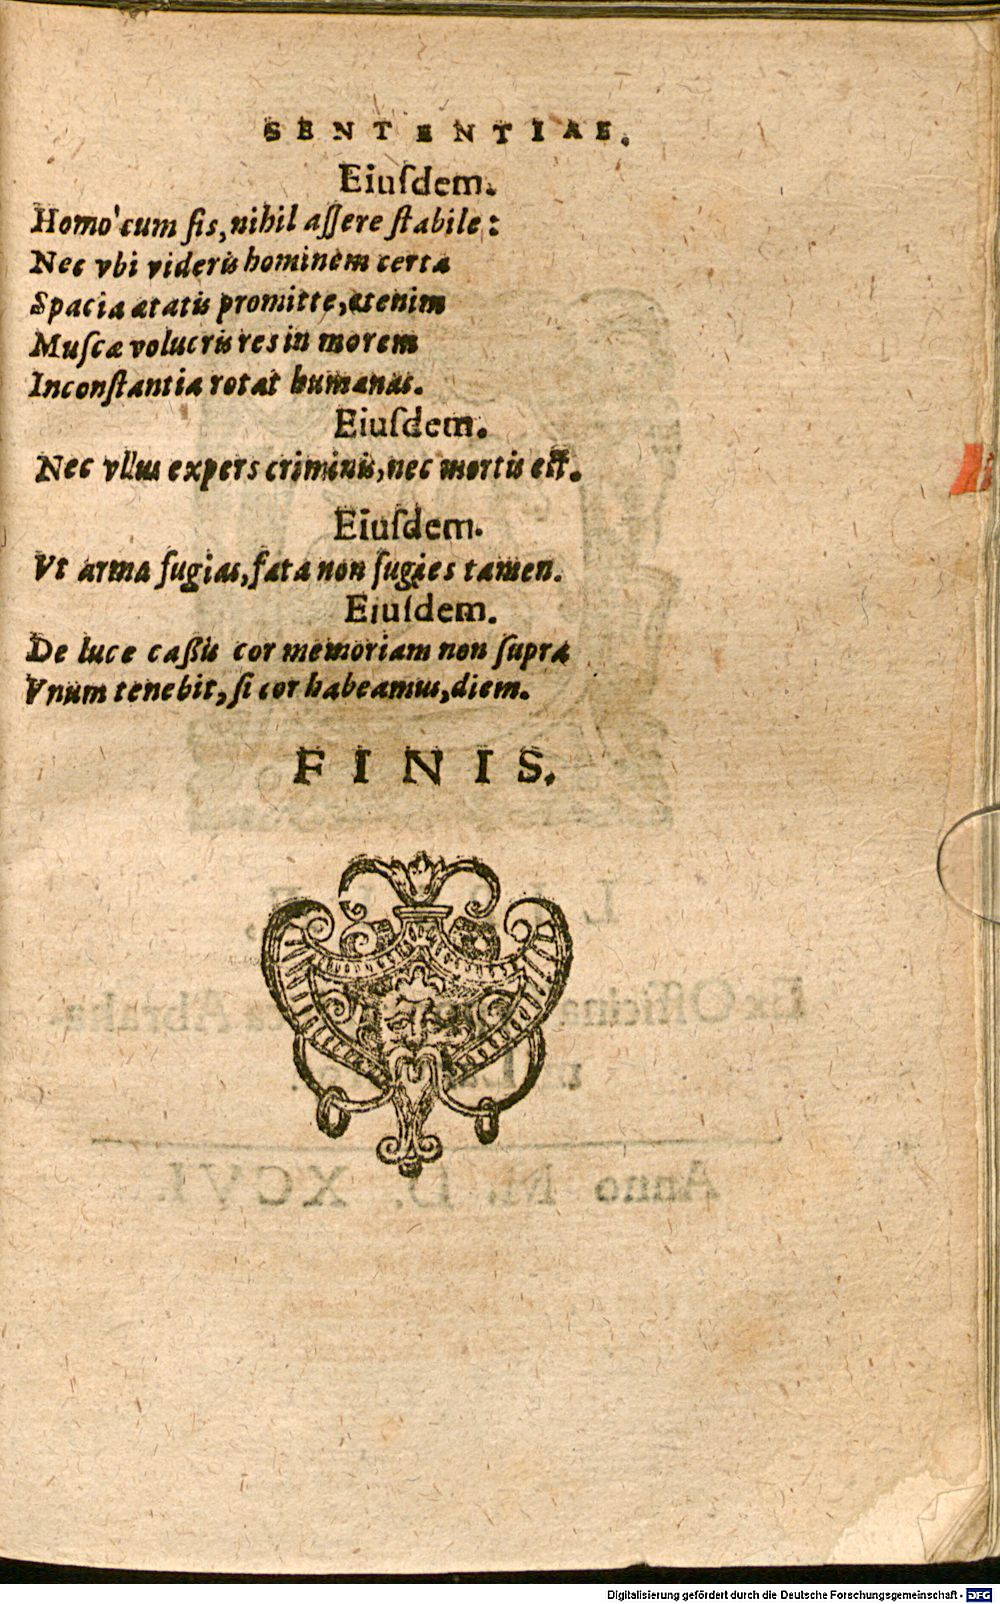 SENTENTIAE.
Eiuſdem.
Homo cum ſis, nihil aſſere ſtabile:
Nec vbi videris hominem certa
Spacia ætatis promitte, etenim
Muſcæ volucris res in morem
Inconſtantia rotat humanas.
Eiuſdem.
Nec vllus expers criminis, nec mortis eſt.
Eiuſdem.
Vt arma fugias, fata non fugies tamen.
Eiuſdem.
De luce caßis cor memoriam non ſupra
Vnum tenebit, ſi cor habeamus, diem.
FINIS.
Ex Officina Abraha-
Anno M. D. XCVI.
Digitalisierung gefördert durch die Deutsche Forschungsgemeinschaft - DFG